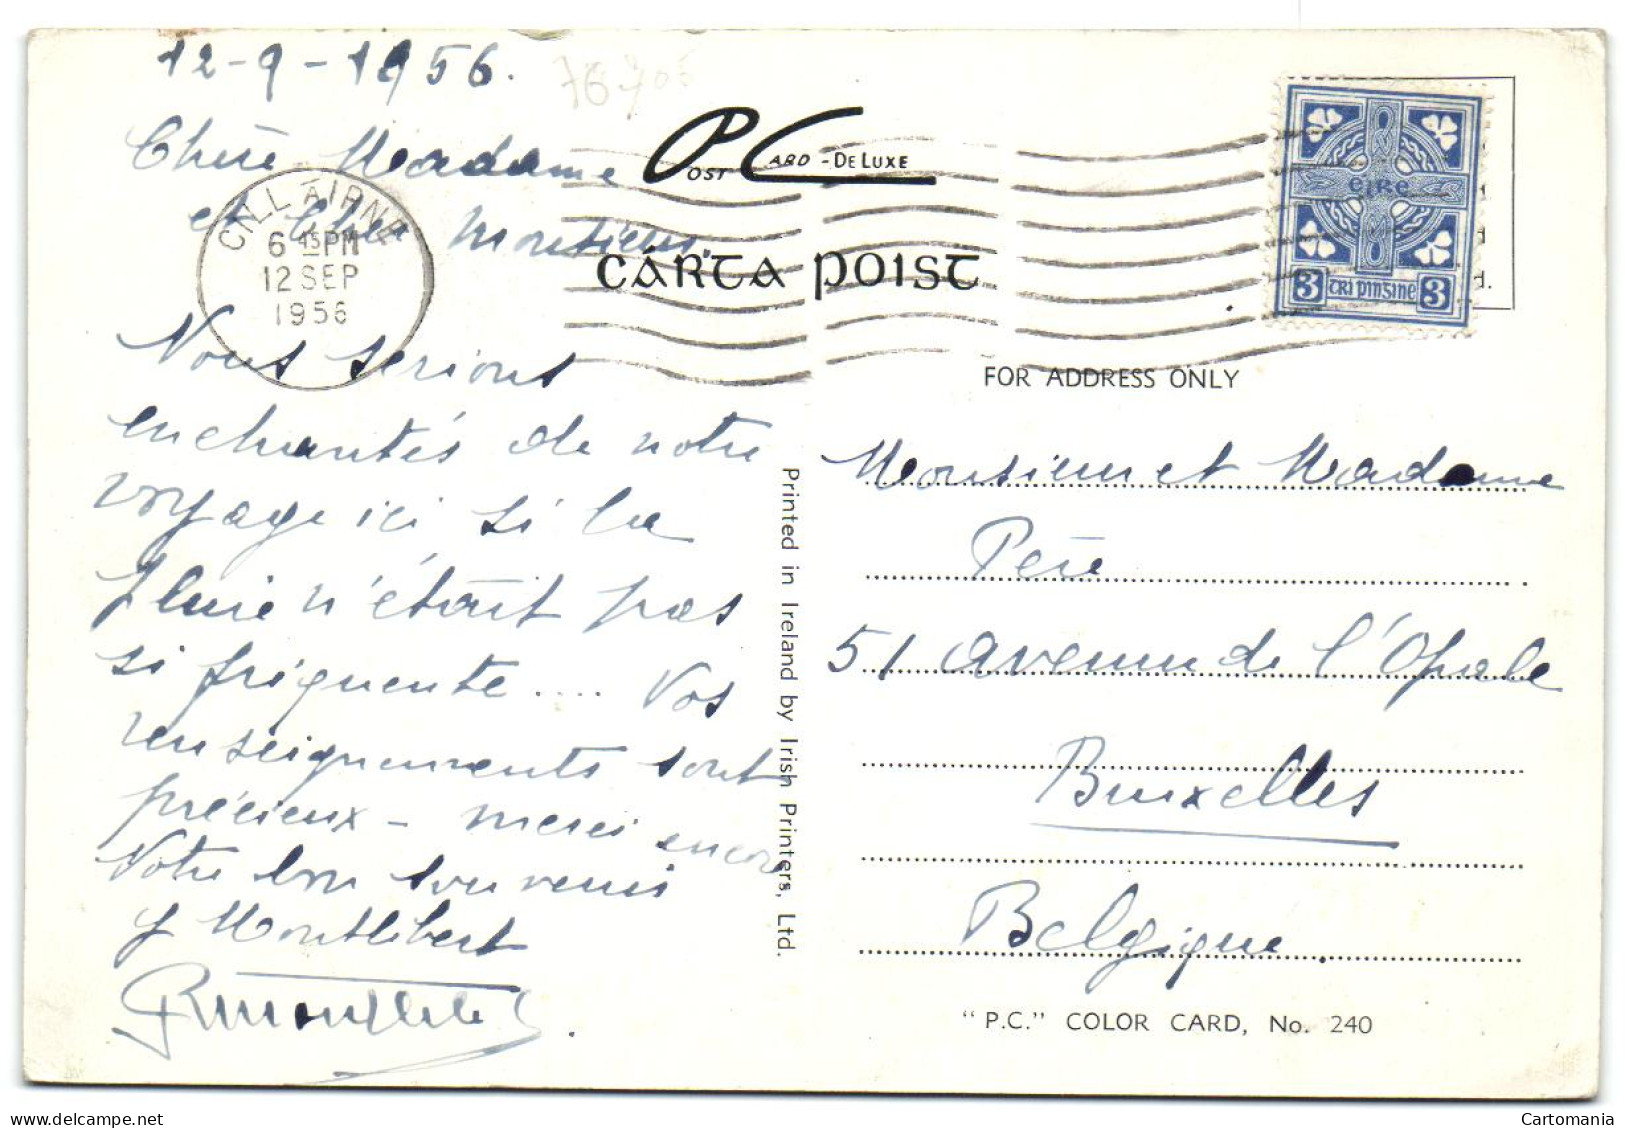 12-9-1956.
Chère Madame
et Cher Monsieur.
Nous serions
enchantés de notre
voyage ici si la
pluie n'était pas
si fréquente .... Vos
renseignements sont
précieux - merci encore
Notre bon souvenir
Y Montlibert
CILL AIRNE
6 15 PM
12 SEP
1956
POST CARD - DE LUXE
CÁRTA POIST
éIRe
3 TRÍ PINGINE 3
d.
FOR ADDRESS ONLY
Monsieur et Madame
Père
51 avenue de l'Opale
Bruxelles
Belgique
"P.C." COLOR CARD, No. 240
Printed in Ireland by Irish Printers, Ltd.
Cartomania